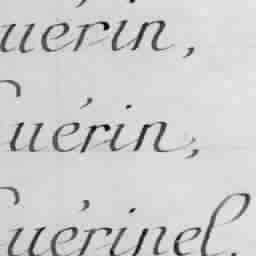 uérin,
uérin,
uérinel.